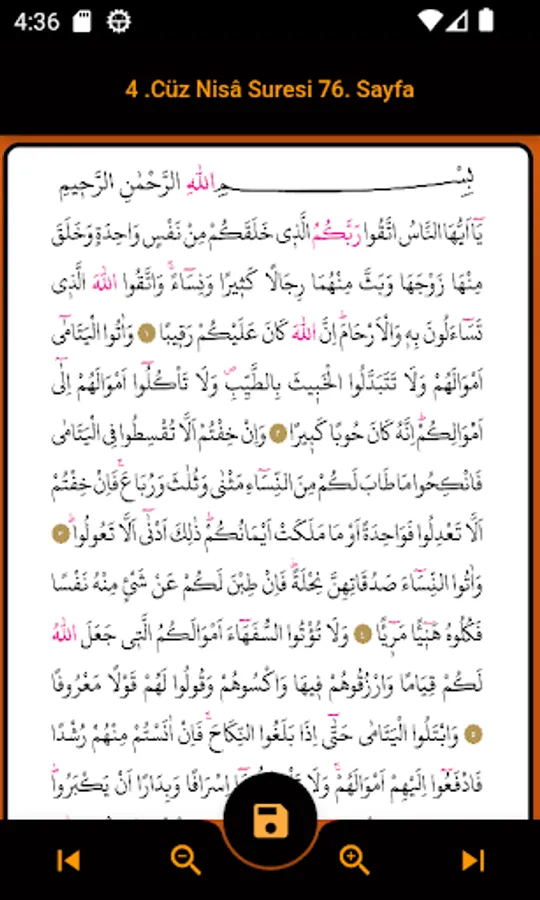 4:36
4 .Cüz Nisâ Suresi 76. Sayfa
بِسْمِ اللّٰهِ الرَّحْمٰنِ الرَّحٖيمِ
يَٓا اَيُّهَا النَّاسُ اتَّقُوا رَبَّكُمُ الَّذٖى خَلَقَكُمْ مِنْ نَفْسٍ وَاحِدَةٍ وَخَلَقَ
مِنْهَا زَوْجَهَا وَبَثَّ مِنْهُمَا رِجَالًا كَثٖيرًا وَنِسَٓاءًۚ وَاتَّقُوا اللّٰهَ الَّذٖى
تَسَٓاءَلُونَ بِهٖ وَالْاَرْحَامَؕ اِنَّ اللّٰهَ كَانَ عَلَيْكُمْ رَقٖيبًا ﴿١﴾ وَاٰتُوا الْيَتَامٰٓى
اَمْوَالَهُمْ وَلَا تَتَبَدَّلُوا الْخَبٖيثَ بِالطَّيِّبِࣕ وَلَا تَاْكُلُٓوا اَمْوَالَهُمْ اِلٰٓى
اَمْوَالِكُمْؕ اِنَّهُ كَانَ حُوبًا كَبٖيرًا ﴿٢﴾ وَاِنْ خِفْتُمْ اَلَّا تُقْسِطُوا فِى الْيَتَامٰى
فَانْكِحُوا مَا طَابَ لَكُمْ مِنَ النِّسَٓاءِ مَثْنٰى وَثُلٰثَ وَرُبَاعَۚ فَاِنْ خِفْتُمْ
اَلَّا تَعْدِلُوا فَوَاحِدَةً اَوْ مَا مَلَكَتْ اَيْمَانُكُمْؕ ذٰلِكَ اَدْنٰٓى اَلَّا تَعُولُواؕ ﴿٣﴾
وَاٰتُوا النِّسَٓاءَ صَدُقَاتِهِنَّ نِحْلَةًؕ فَاِنْ طِبْنَ لَكُمْ عَنْ شَىْءٍ مِنْهُ نَفْسًا
فَكُلُوهُ هَنٖٓيـًٔا مَرٖٓيـًٔا ﴿٤﴾ وَلَا تُؤْتُوا السُّفَهَٓاءَ اَمْوَالَكُمُ الَّتٖى جَعَلَ اللّٰهُ
لَكُمْ قِيَامًا وَارْزُقُوهُمْ فٖيهَا وَاكْسُوهُمْ وَقُولُوا لَهُمْ قَوْلًا مَعْرُوفًا
﴿٥﴾ وَابْتَلُوا الْيَتَامٰى حَتّٰٓى اِذَا بَلَغُوا النِّكَاحَۚ فَاِنْ اٰنَسْتُمْ مِنْهُمْ رُشْدًا
فَادْفَعُٓوا اِلَيْهِمْ اَمْوَالَهُمْۚ وَلَا اِسْرَافًا وَبِدَارًا اَنْ يَكْبَرُواؕ